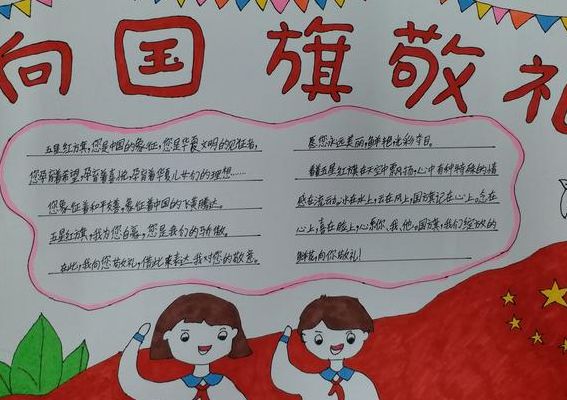 向国旗敬礼
五星红旗,您是中国的象征,您是华夏文明的见证者,
您孕育着希望,孕育着喜悦,孕育着华夏儿女们的理想……
您象征着和平友善,象征着中国的飞黄腾达。
五星红旗,我为您自豪,您是我们的骄傲。
在此,我向您敬礼,借此来表达我对您的敬意。
愿您永远美丽,鲜艳,光彩夺目。
看着五星红旗在天空中飘扬,心中有种特殊的情
感在流动。水在水上,云在风上,国旗记在心上。念在
心上,喜在脸上,心系你、我、他。国旗,我们绽放的
鲜花,向你敬礼!